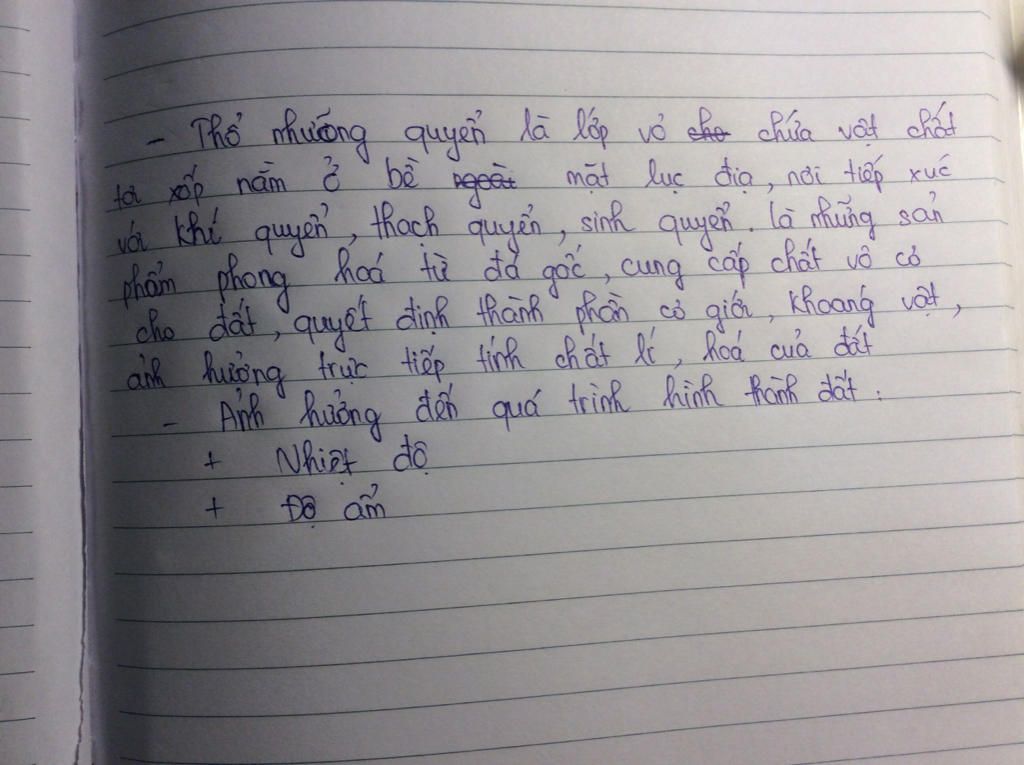 - Thổ nhưỡng quyển là lớp vỏ cho chứa vật chất
tơi xốp nằm ở bề ngoài mặt lục địa, nơi tiếp xúc
với khí quyển, thạch quyển, sinh quyển. là những sản
phẩm phong hoá từ đá gốc, cung cấp chất vô cơ
cho đất, quyết định thành phần cơ giới, khoáng vật,
ảnh hưởng trực tiếp tính chất lí, hoá của đất
- Ảnh hưởng đến quá trình hình thành đất:
+ Nhiệt độ
+ Độ ẩm